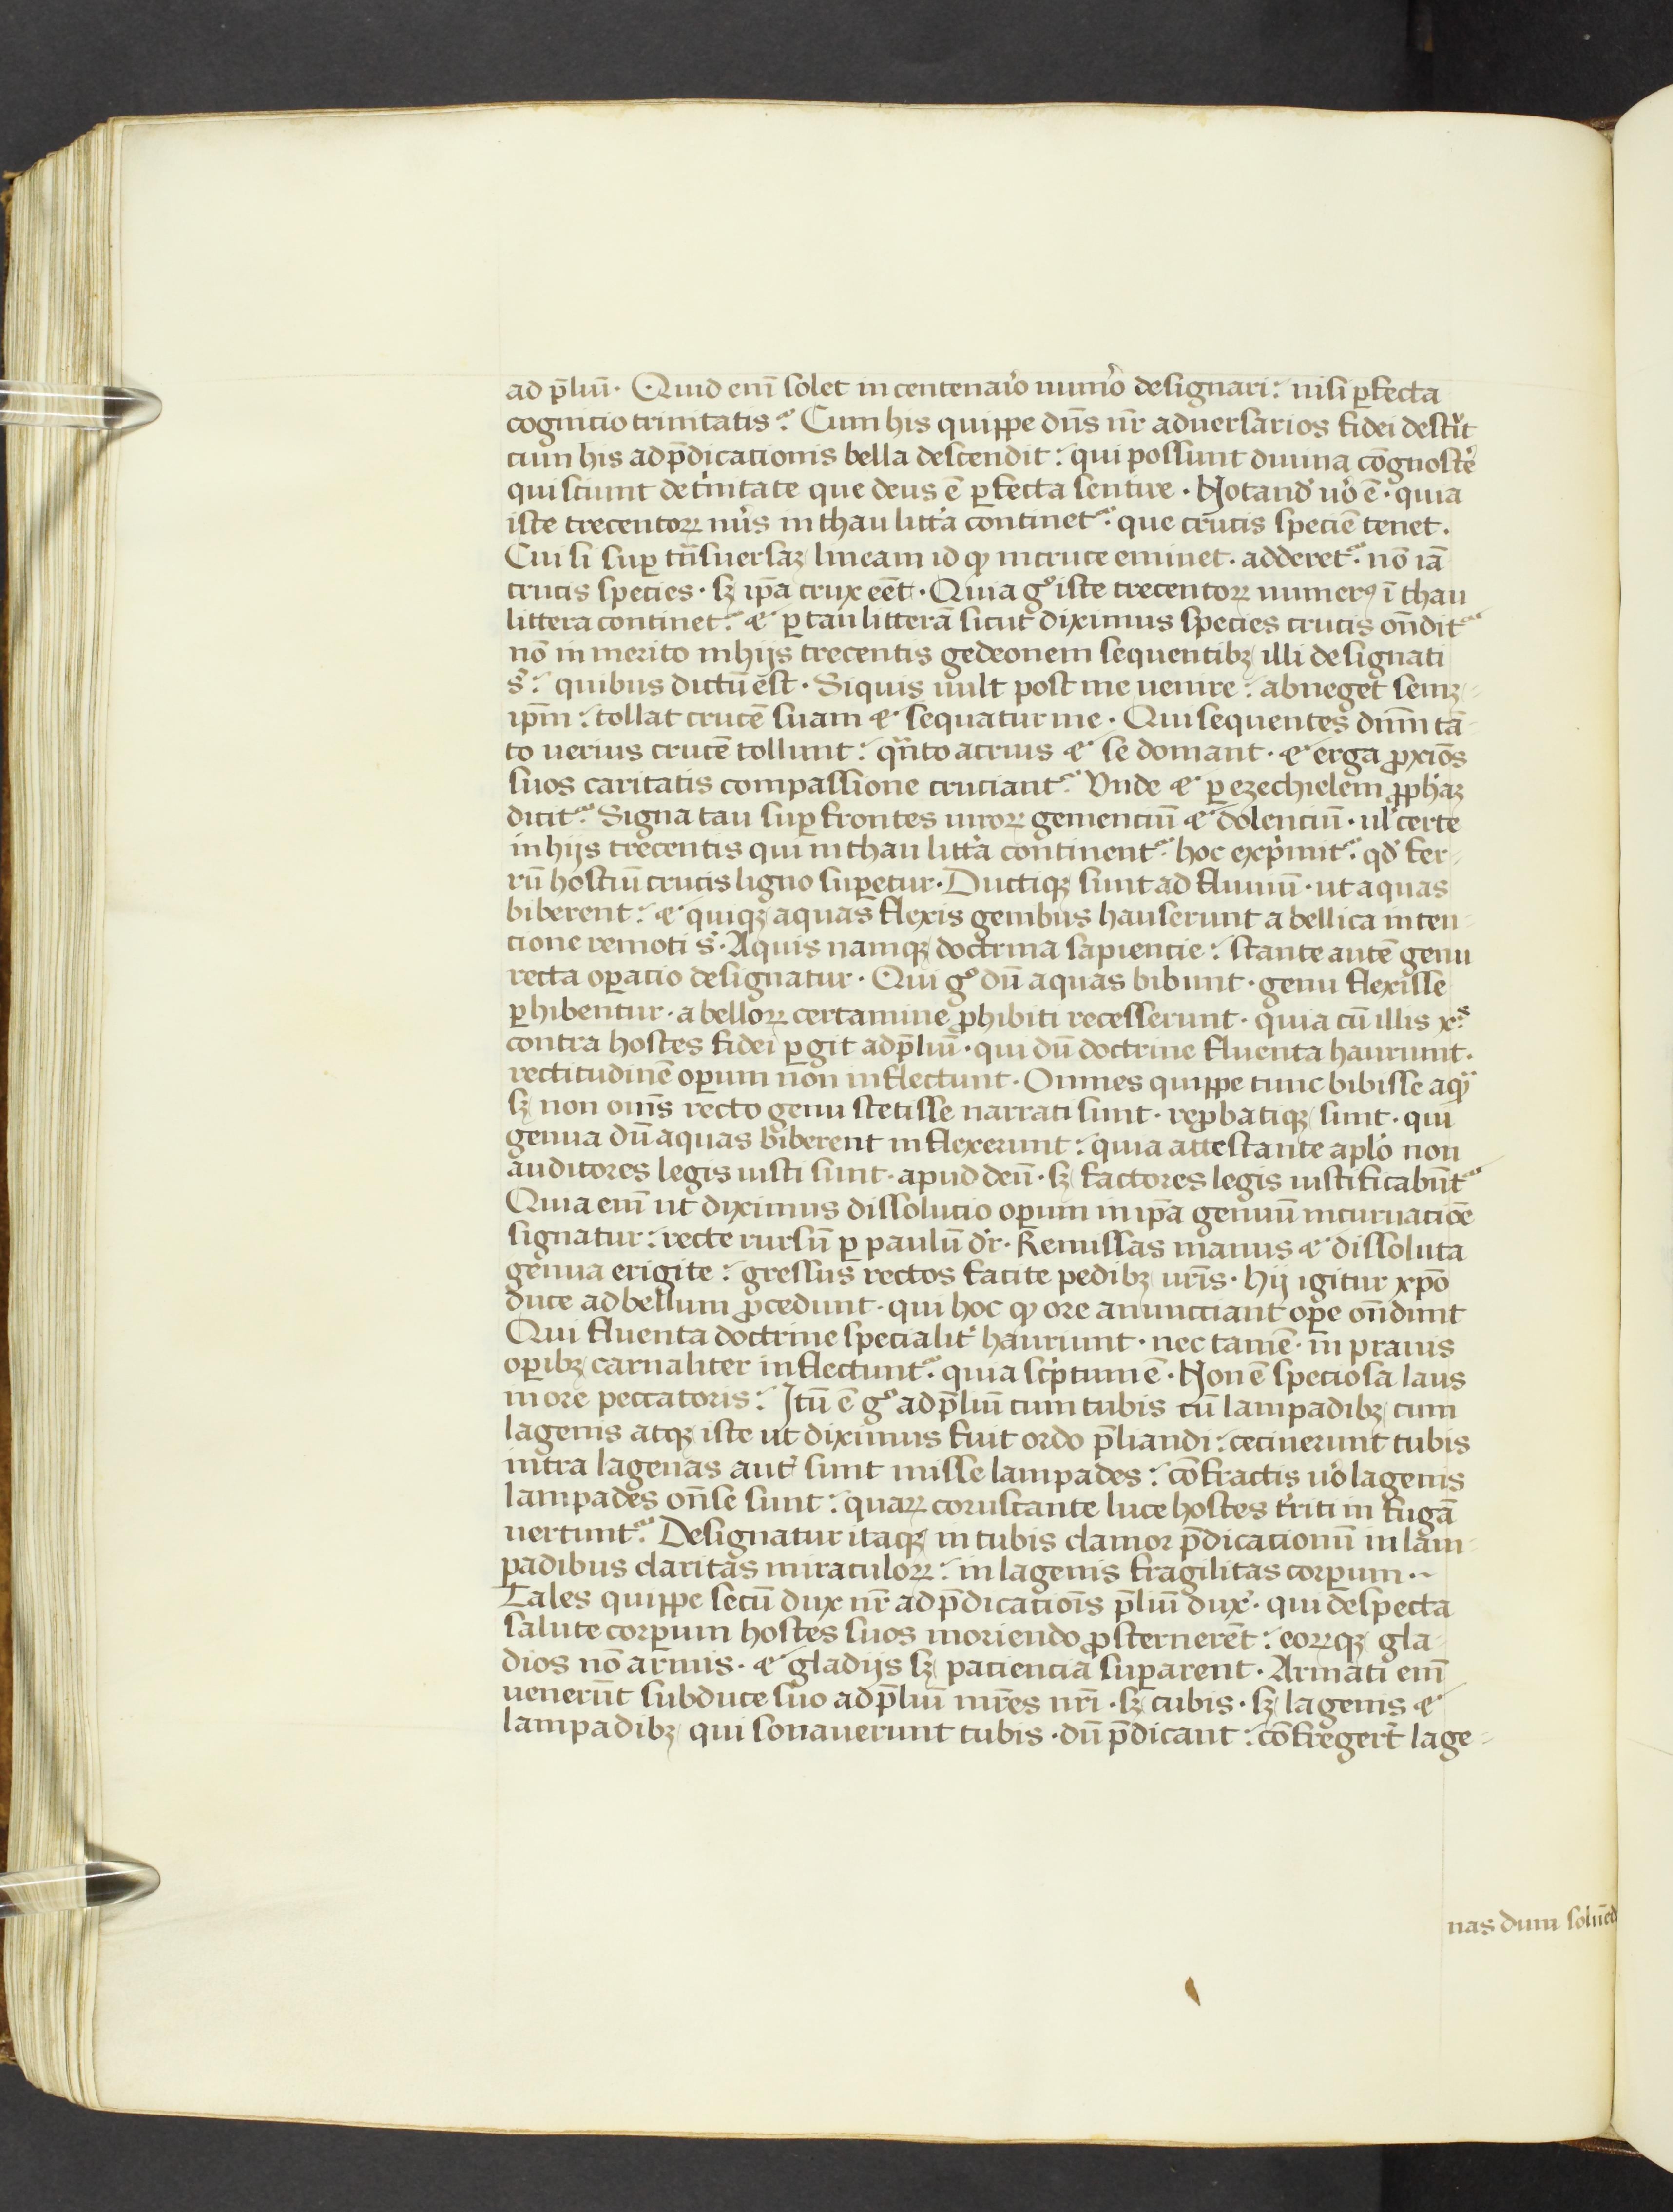 ad p̄liū· Quid eni͞ solet in centenaͥo num͛o designari: nisi ꝑfecta
cognicio trinitatis: Cum his quippe dn̄s nr̄ aduersarios fidei dest͛it
cum his ad p̄dicacionis bella descendit: qui possunt diuina cōgnosc͛e
qui sciunt de tͥnitate que deus ē ꝑfecta sentire· Notand͛ uͦo ē· quia
iste trecentoꝝ nu͛s in thau litt͛a continet᷑: que crucis speciē tenet.
Cui si suꝑ tn̄suersaꝫ lineam id qͦ in cruce eminet· adderet᷑· nō iā
crucis species· sꝫ ip̄a crux eēt· Quia gͦ iste trecentoꝝ numerꝰ ī thau
littera continet᷑: & ꝑ tau litterā sicut diximus species crucis on̄dit᷑
nō in merito in hijs trecentis gedeonem sequentibꝫ illi designati
s͛: quibus dictū est· Siquis uult post me uenire: abneget semꝫ-
ip̄m: tollat crucē suam & sequatur me· Qui sequentes dn̄m tā-
to uerius crucē tollunt: qᷓnto acrius & se domant· & erga ꝓxiōs
suos caritatis compassione cruciant᷑· Vnde & ꝑ ezechielem ꝓph͛aꝫ
dicit᷑: Signa tau suꝑ frontes uiroꝝ gemenciū & dolenciū· ul͛ certe
in hijs trecentis qui in thau litt͛a continent᷑: hoc expͥmit᷑: qd͛ fer-
rū hostiū crucis ligno suꝑetur· Ductiqꝫ sunt ad fluuiū· ut aquas
biberent: & quiqꝫ aquas flexis genibus hauserunt a bellica inten-
cione remoti s͛· Aquis namqꝫ doctrina sapiencie: stante autē genu
recta oꝑacio designatur· Qui gͦ dū aquas bibunt· genu flexisse
ꝑhibentur· a belloꝝ certamine ꝓhibiti recesserunt· quia cū illis xᷤ
contra hostes fidei ꝑgit ad p̄liū· qui dū doctrine fluenta hauriunt·
rectitudinē oꝑum non inflectunt· Omnes quippe tunc bibisse aqᷓ
sꝫ non om̄s recto genu stetisse narrati sunt· reꝓbatiqꝫ sunt· qui
genua dū aquas biberent inflexerunt: quia attestante apl͛o non
auditores legis iusti sunt· apud deū· sꝫ factores legis iustificabūt᷑
Quia eni͞ ut diximus dissolucio oꝑum in ip̄a genuū incuruaciōe
signatur: recte rursū ꝑ paulū d͛r· Remissas manus & dissoluta
genua erigite: gressus rectos facite pedibꝫ ur̄is· Hij igitur xp̄o
duce ad bellum ꝓcedunt· qui hoc qͦ ore anuncciant oꝑe on̄dunt
Qui fluenta doctrine specialit͛ hauriunt· nec tamē· in prauis
oꝑibꝫ carnaliter inflectunt᷑· quia scͥptum ē· Non ē speciosa laus
in ore peccatoris: Itū ē gͦ ad p̄liū cum tubis cū lampadibꝫ cum
lagenis atqꝫ iste ut diximus fuit ordo p̄liandi: cecinerunt tubis
intra lagenas aut͛ sunt misse lampades: cōfractis uͦo lagenis
lampades on̄se sunt: quaꝝ coruscante luce hostes t͛riti in fugā
uertunt᷑: Designatur itaqꝫ in tubis clamor p̄dicacionū in lam-
padibus claritas miraculoꝝ: in lagenis fragilitas corꝑum·~
Tales quippe secū dux nr̄ ad p̄dicaciōis p̄liū dux͛· qui despecta
salute corꝑum hostes suos moriendo ꝓsternerēt: eoꝝqꝫ gla-
dios nō armis· & gladijs sꝫ paciencia suꝑarent· Armati eni͞
uenerūt sub duce suo ad p̄liū mr̄es nr̄i· sꝫ tubis· sꝫ lagenis &
lampadibꝫ qui sonauerunt tubis· dū p̄dicant: cōfregert͛ lage-
nas dum